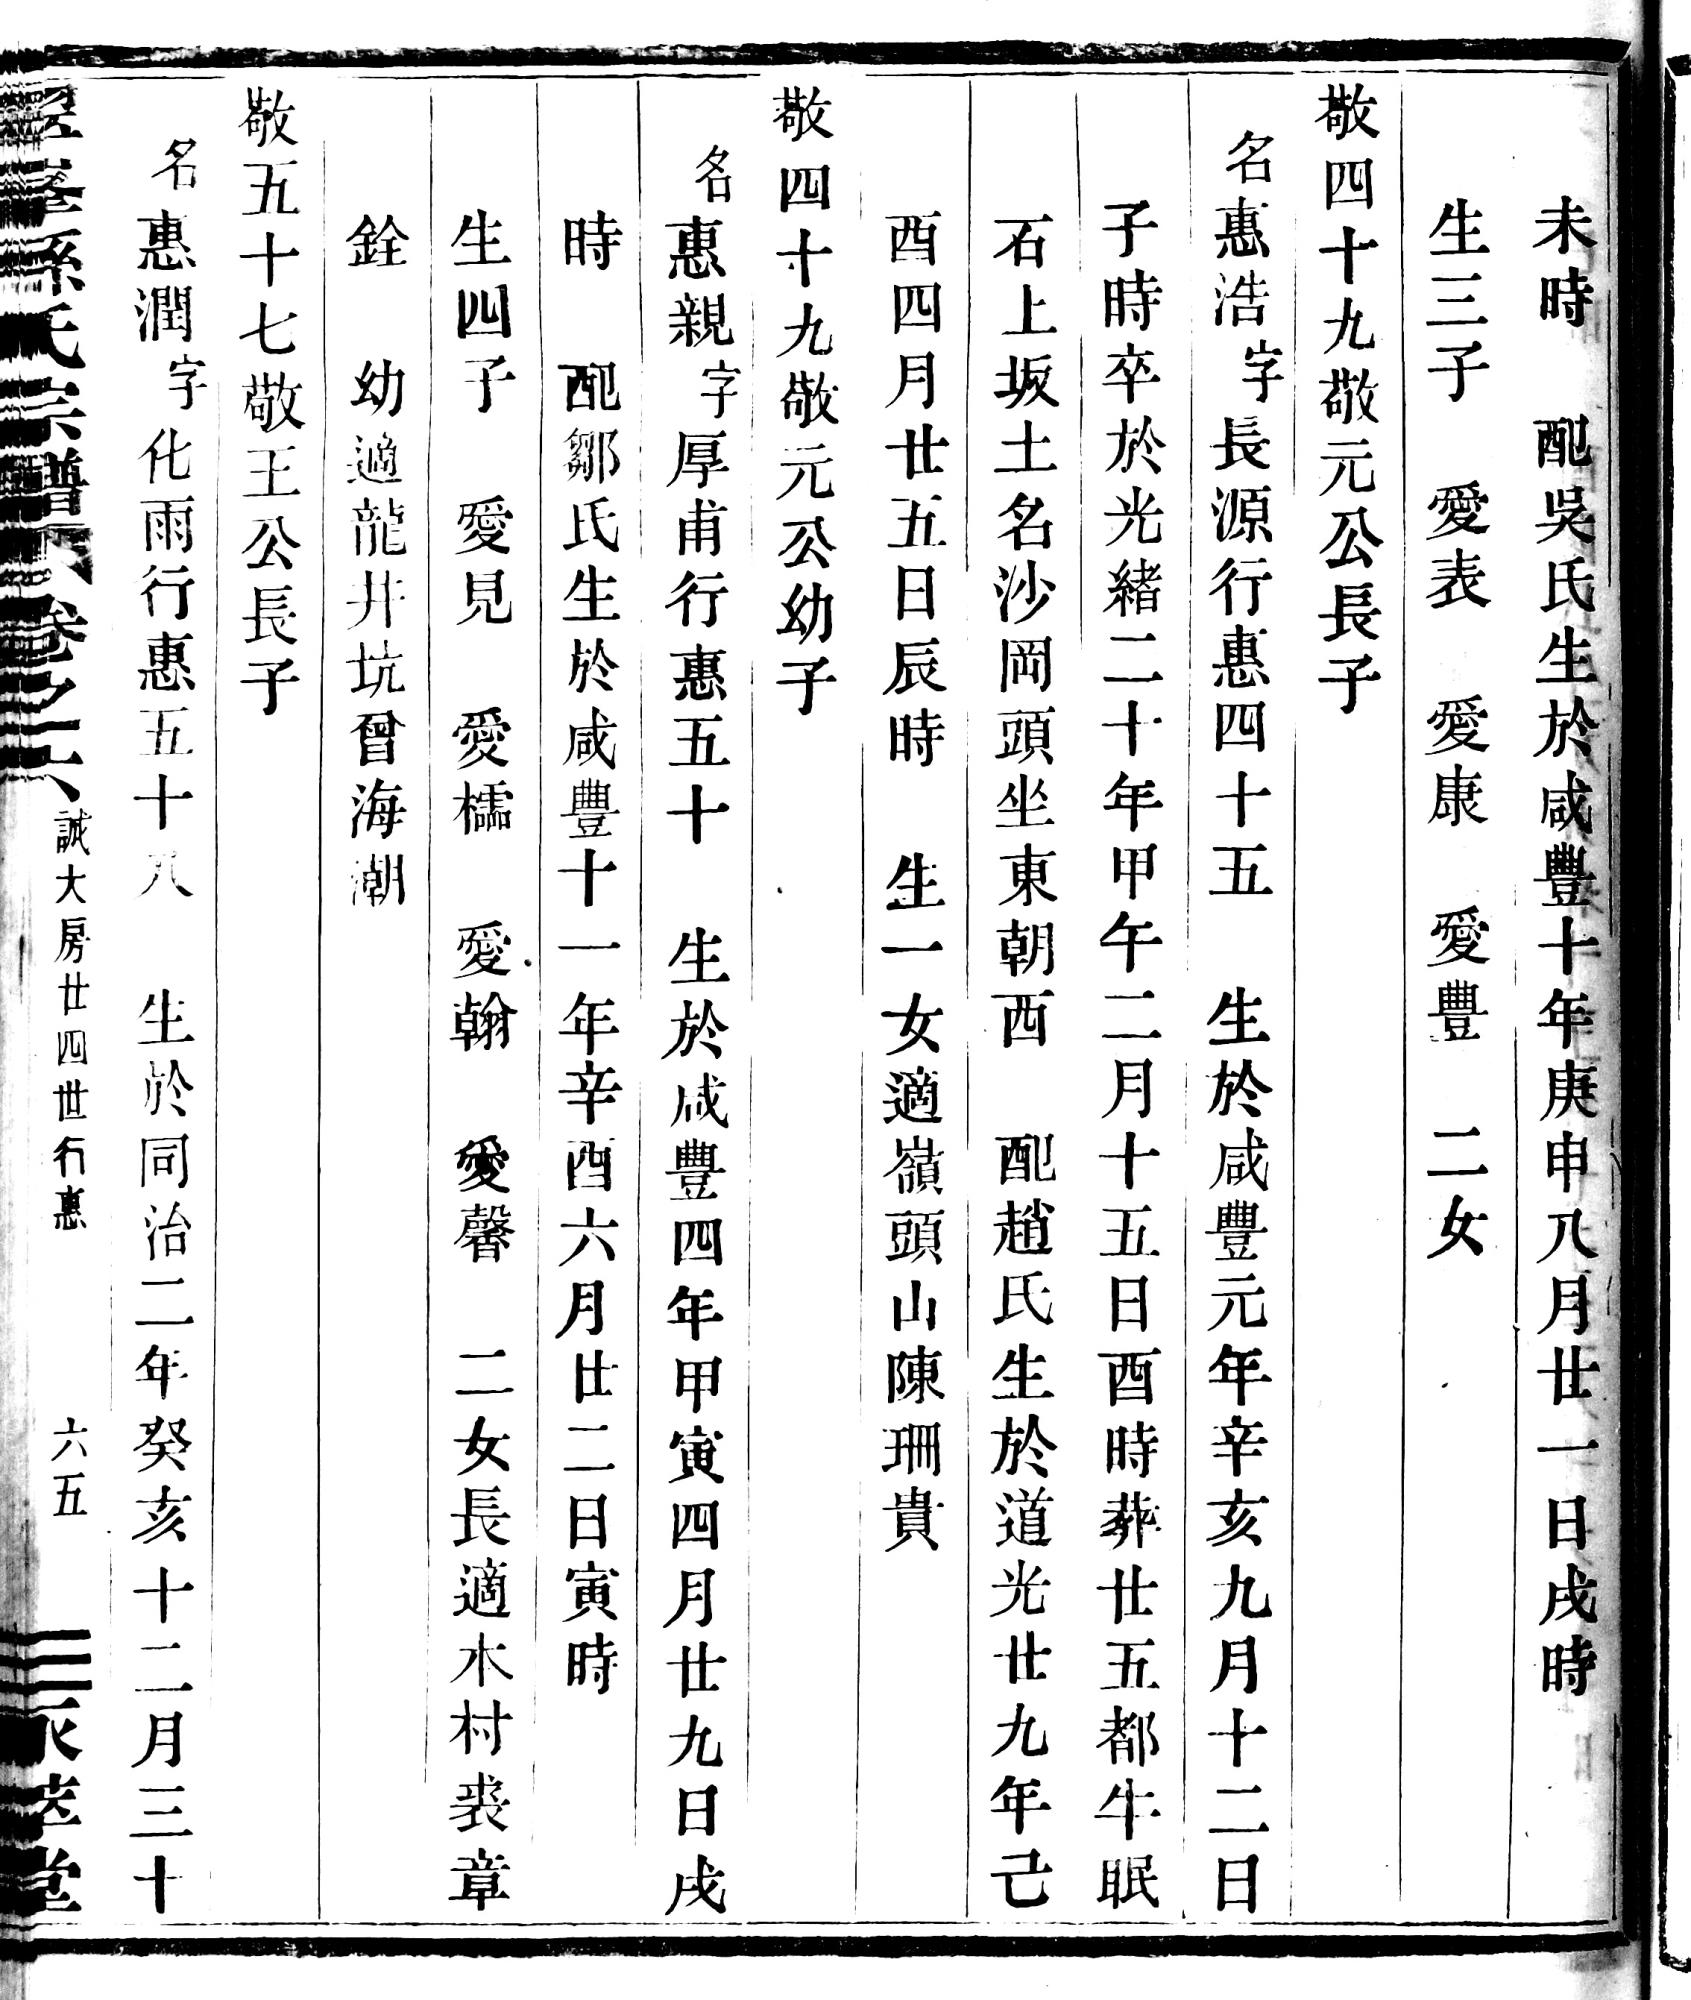 未時　配吳氏生於咸豐十年庚申八月廿一日戌時
生三子　愛表　愛康　愛豐　二女
敬四十九敬元公長子
名惠浩字長源行惠四十五　生於咸豐元年辛亥九月十二日
子時卒於光緒二十年甲午二月十五日酉時葬廿五都牛眠
石上坂土名沙岡頭坐東朝西　配趙氏生於道光廿九年己
酉四月廿五日辰時　生一女適嶺頭山陳珊貴
敬四十九敬元公幼子
名惠親字厚甫行惠五十　生於咸豐四年甲寅四月廿九日戌
時　配鄒氏生於咸豐十一年辛酉六月廿二日寅時
生四子　愛見　愛檽　愛翰　愛馨　二女長適木村裘章
銓　幼適龍井坑曾海潮
敬五十七敬王公長子
名惠潤字化雨行惠五十八　生於同治二年癸亥十二月三十
孫氏宗譜　卷之六　誠大房廿四世行惠　六五　堂